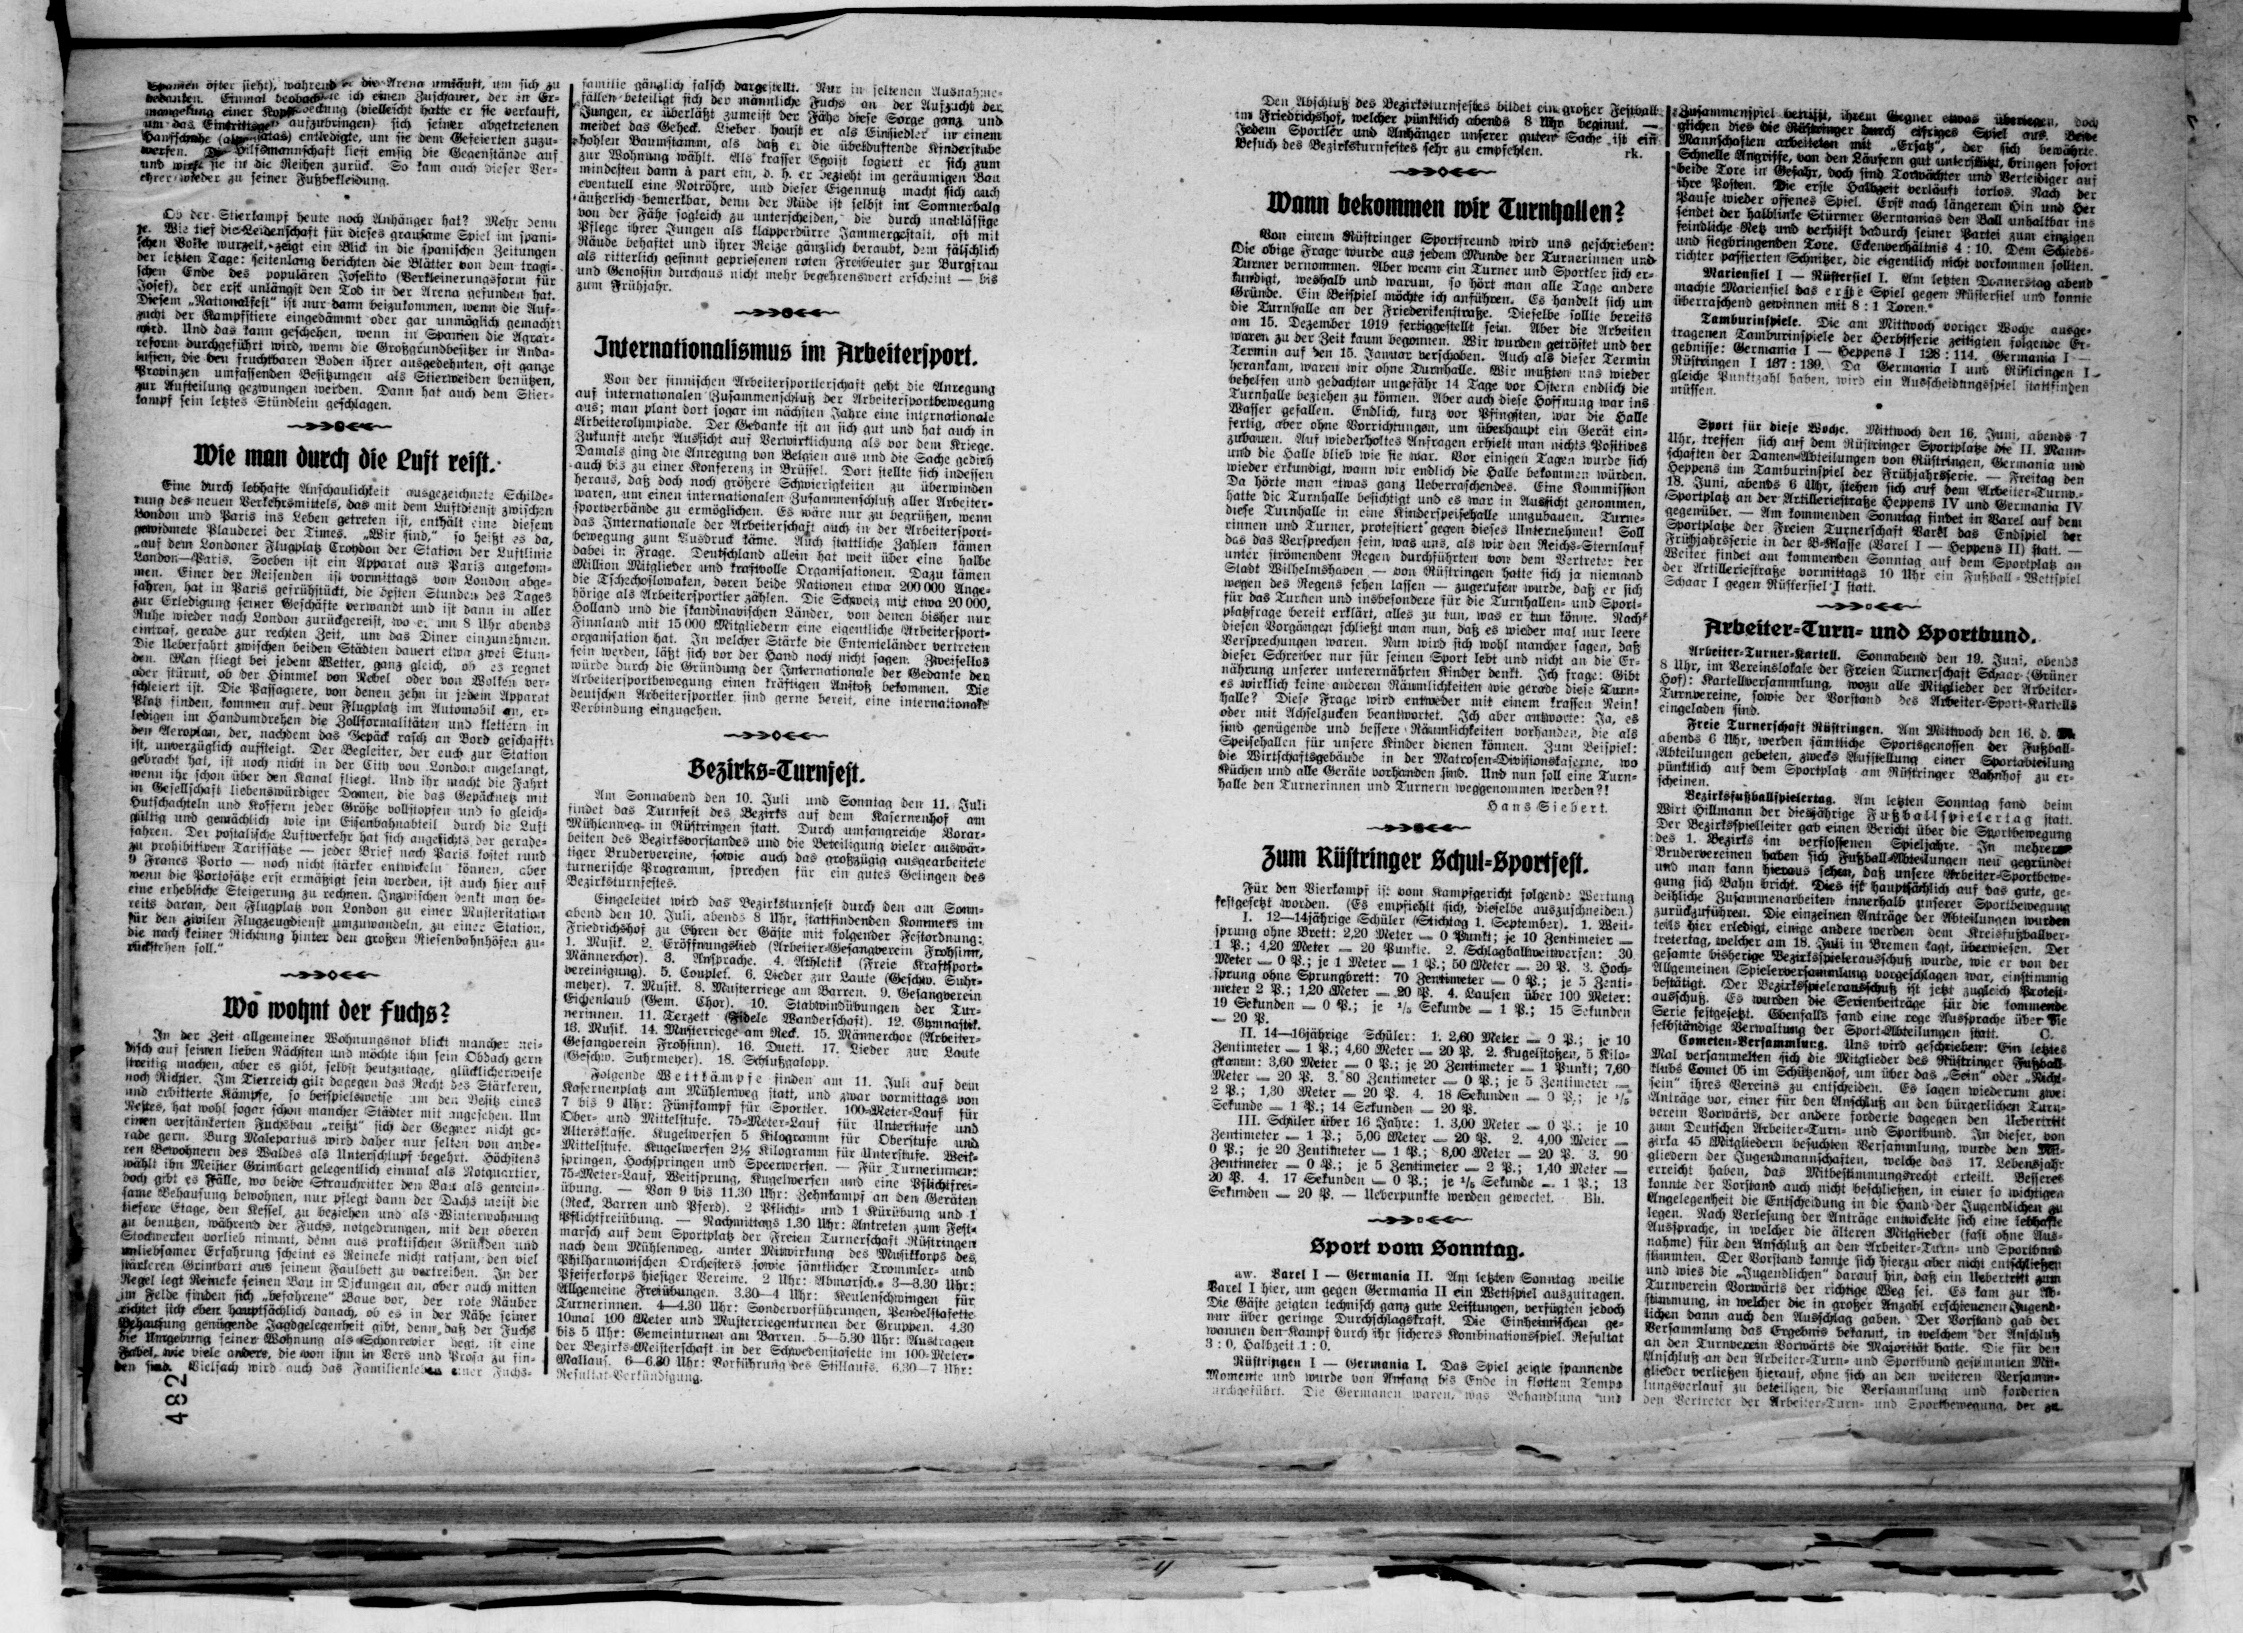 Spanien öfter sieht), während er die Arena umläuft, um sich zu
bedanken. Einmal beobachtete ich einen Zuschauer, der in Er-
mangelung einer Kopfbedeckung (vielleicht hatte er sie verkauft,
um das Eintrittsgeld aufzubringen) sich seiner abgetretenen
Hanfschuhe entledigte, um sie dem Gefeierten zuzu-
werfen. Die Hilfsmannschaft liest emsig die Gegenstände auf
und wirft sie in die Reihen zurück. So kam auch dieser Ver-
ehrer wieder zu seiner Fußbekleidung.
Ob der Stierkampf heute noch Anhänger hat? Mehr denn
je. Wie tief die Leidenschaft für dieses grausame Spiel im spani-
schen Volke wurzelt, zeigt ein Blick in die spanischen Zeitungen
der letzten Tage: seitenlang berichten die Blätter von dem tragi-
schen Ende des populären Joselito (Verkleinerungsform für
Josef), der erst unlängst den Tod in der Arena gefunden hat.
Diesem „Nationalfest“ ist nur dann beizukommen, wenn die Auf-
zucht der Kampfstiere eingedämmt oder gar unmöglich gemacht
wird. Und das kann geschehen, wenn in Spanien die Agrar-
reform durchgeführt wird, wenn die Großgrundbesitzer in Anda-
lusien, die den fruchtbaren Boden ihrer ausgedehnten, oft ganze
Provinzen umfassenden Besitzungen als Stierweiden benützen,
zur Aufteilung gezwungen werden. Dann hat auch dem Stier-
kampf sein letztes Stündlein geschlagen.
Wie man durch die Luft reist.
Eine durch lebhafte Anschaulichkeit ausgezeichnete Schilde-
rung des neuen Verkehrsmittels, das mit dem Luftdienst zwischen
London und Paris ins Leben getreten ist, enthält eine diesem
gewidmete Plauderei der Times. „Wir sind,“ so heißt es da,
„auf dem Londoner Flugplatz Croydon der Station der Luftlinie
London—Paris. Soeben ist ein Apparat aus Paris angekom-
men. Einer der Reisenden ist vormittags von London abge-
fahren, hat in Paris gefrühstückt, die besten Stunden des Tages
zur Erledigung seiner Geschäfte verwandt und ist dann in aller
Ruhe wieder nach London zurückgereist, wo er um 8 Uhr abends
eintraf, gerade zur rechten Zeit, um das Diner einzunehmen.
Die Ueberfahrt zwischen beiden Städten dauert etwa zwei Stun-
den. Man fliegt bei jedem Wetter, ganz gleich, ob es regnet
oder stürmt, ob der Himmel von Nebel oder von Wolken ver-
schleiert ist. Die Passagiere, von denen zehn in jedem Apparat
Platz finden, kommen auf dem Flugplatz im Automobil an, er-
ledigen im Handumdrehen die Zollformalitäten und klettern in
den Aeroplan, der, nachdem das Gepäck rasch an Bord geschafft
ist, unverzüglich aufsteigt. Der Begleiter, der euch zur Station
gebracht hat, ist noch nicht in der City von London angelangt,
wenn ihr schon über den Kanal fliegt. Und ihr macht die Fahrt
in Gesellschaft liebenswürdiger Damen, die das Gepäcknetz mit
Hutschachteln und Koffern jeder Größe vollstopfen und so gleich-
gültig und gemächlich wie im Eisenbahnabteil durch die Luft
fahren. Der postalische Luftverkehr hat sich angesichts der gerade-
zu prohibitiven Tarifsätze — jeder Brief nach Paris kostet rund
9 Francs Porto — noch nicht stärker entwickeln können, aber
wenn die Portosätze erst ermäßigt sein werden, ist auch hier auf
eine erhebliche Steigerung zu rechnen. Inzwischen denkt man be-
reits daran, den Flugplatz von London zu einer Musterstation
für den zivilen Flugzeugdienst umzuwandeln, zu einer Station,
die nach keiner Richtung hinter den großen Riesenbahnhöfen zu-
rückstehen soll.“
Wo wohnt der Fuchs?
In der Zeit allgemeiner Wohnungsnot blickt mancher nei-
disch auf seinen lieben Nächsten und möchte ihm sein Obdach gern
streitig machen, aber es gibt, selbst heutzutage, glücklicherweise
noch Richter. Im Tierreich gilt dagegen das Recht des Stärkeren,
und erbitterte Kämpfe, so beispielsweise um den Besitz eines
Nestes, hat wohl sogar schon mancher Städter mit angesehen. Um
einen verstänkerten Fuchsbau „reißt“ sich der Gegner nicht ge-
rade gern. Burg Malepartus wird daher nur selten von ande-
ren Bewohnern des Waldes als Unterschlupf begehrt. Höchstens
wählt ihn Meister Grimbart gelegentlich einmal als Notquartier,
doch gibt es Fälle, wo beide Strauchritter den Bau als gemein-
same Behausung bewohnen, nur pflegt dann der Dachs meist die
tiefere Etage, den Kessel, zu beziehen und als Winterwohnung
zu benutzen, während der Fuchs, notgedrungen, mit den oberen
Stockwerken vorlieb nimmt, denn aus praktischen Gründen und
unliebsamer Erfahrung scheint es Reineke nicht ratsam, den viel
stärkeren Grimbart aus seinem Faulbett zu vertreiben. In der
Regel legt Reineke seinen Bau in Dickungen an, aber auch mitten
im Felde finden sich „befahrene“ Baue vor, der rote Räuber
richtet sich eben hauptsächlich danach, ob es in der Nähe seiner
Behausung genügende Jagdgelegenheit gibt, denn daß der Fuchs
die Umgebung seiner Wohnung als Schonrevier hegt, ist eine
Fabel, wie viele andere, die von ihm in Vers und Prosa zu fin-
den sind. Vielfach wird auch das Familienleben einer Fuchs-
482
familie gänzlich falsch dargestellt. Nur in seltenen Ausnahme-
fällen beteiligt sich der männliche Fuchs an der Aufzucht der
Jungen, er überläßt zumeist der Fähe diese Sorge ganz und
meidet das Geheck. Lieber haust er als Einsiedler in einem
hohlen Baumstamm, als daß er die übelduftende Kinderstube
zur Wohnung wählt. Als krasser Egoist logiert er sich zum
mindesten dann à part ein, d. h. er bezieht im geräumigen Bau
eventuell eine Notröhre, und dieser Eigennutz macht sich auch
äußerlich bemerkbar, denn der Rüde ist selbst im Sommerbalg
von der Fähe sogleich zu unterscheiden, die durch unablässige
Pflege ihrer Jungen als klapperdürre Jammergestalt, oft mit
Räude behaftet und ihrer Reize gänzlich beraubt, dem fälschlich
als ritterlich gesinnt gepriesenen roten Freibeuter zur Burgfrau
und Genossin durchaus nicht mehr begehrenswert erscheint — bis
zum Frühjahr.
Internationalismus im Arbeitersport.
Von der finnischen Arbeitersportlerschaft geht die Anregung
auf internationalen Zusammenschluß der Arbeitersportbewegung
aus; man plant dort sogar im nächsten Jahre eine internationale
Arbeiterolympiade. Der Gedanke ist an sich gut und hat auch in
Zukunft mehr Aussicht auf Verwirklichung als vor dem Kriege.
Damals ging die Anregung von Belgien aus und die Sache gedieh
auch bis zu einer Konferenz in Brüssel. Dort stellte sich indessen
heraus, daß doch noch größere Schwierigkeiten zu überwinden
waren, um einen internationalen Zusammenschluß aller Arbeiter-
sportverbände zu ermöglichen. Es wäre nur zu begrüßen, wenn
das Internationale der Arbeiterschaft auch in der Arbeitersport-
bewegung zum Ausdruck käme. Auch stattliche Zahlen kämen
dabei in Frage. Deutschland allein hat weit über eine halbe
Million Mitglieder und kraftvolle Organisationen. Dazu kämen
die Tschechoslowaken, deren beide Nationen etwa 200 000 Ange-
hörige als Arbeitersportler zählen. Die Schweiz mit etwa 20 000,
Holland und die skandinavischen Länder, von denen bisher nur
Finnland mit 15 000 Mitgliedern eine eigentliche Arbeitersport-
organisation hat. In welcher Stärke die Ententeländer vertreten
sein werden, läßt sich vor der Hand noch nicht sagen. Zweifellos
würde durch die Gründung der Internationale der Gedanke der
Arbeitersportbewegung einen kräftigen Anstoß bekommen. Die
deutschen Arbeitersportler sind gerne bereit, eine internationale
Verbindung einzugehen.
Bezirks-Turnfest.
Am Sonnabend den 10. Juli und Sonntag den 11. Juli
findet das Turnfest des Bezirks auf dem Kasernenhof am
Mühlenweg in Rüstringen statt. Durch umfangreiche Vorar-
beiten des Bezirksvorstandes und die Beteiligung vieler auswär-
tiger Brudervereine, sowie auch das großzügig ausgearbeitete
turnerische Programm, sprechen für ein gutes Gelingen des
Bezirksturnfestes.
Eingeleitet wird das Bezirksturnfest durch den am Sonn-
abend den 10. Juli, abends 8 Uhr, stattfindenden Kommers im
Friedrichshof zu Ehren der Gäste mit folgender Festordnung:
1. Musik. 2. Eröffnungslied (Arbeiter-Gesangverein Frohsinn,
Männerchor). 3. Ansprache. 4. Athletik (Freie Kraftsport-
vereinigung). 5. Couplet. 6. Lieder zur Laute (Geschw. Suhr-
meyer). 7. Musik. 8. Musterriege am Barren. 9. Gesangverein
Eichenlaub (Gem. Chor). 10. Stabwindübungen der Tur-
nerinnen. 11. Terzett (Fidele Wanderschaft). 12. Gymnastik.
13. Musik. 14. Musterriege am Reck. 15. Männerchor (Arbeiter-
Gesangverein Frohsinn). 16. Duett. 17. Lieder zur Laute
(Geschw. Suhrmeyer). 18. Schlußgalopp.
Folgende Wettkämpfe finden am 11. Juli auf dem
Kasernenplatz am Mühlenweg statt, und zwar vormittags von
7 bis 9 Uhr: Fünfkampf für Sportler. 100-Meter-Lauf für
Ober- und Mittelstufe. 75-Meter-Lauf für Unterstufe und
Altersklasse. Kugelwerfen 5 Kilogramm für Oberstufe und
Mittelstufe. Kugelwerfen 2½ Kilogramm für Unterstufe. Weit-
springen, Hochspringen und Speerwerfen. — Für Turnerinnen:
75-Meter-Lauf, Weitsprung, Kugelwerfen und eine Pflichtfrei-
übung. — Von 9 bis 11.30 Uhr: Zehnkampf an den Geräten
(Reck, Barren und Pferd). 2 Pflicht- und 1 Kürübung und 1
Pflichtfreiübung. — Nachmittags 1.30 Uhr: Antreten zum Fest-
marsch auf dem Sportplatz der Freien Turnerschaft Rüstringen
nach dem Mühlenweg, unter Mitwirkung des Musikkorps des
Philharmonischen Orchesters sowie sämtlicher Trommler- und
Pfeiferkorps hiesiger Vereine. 2 Uhr: Abmarsch. 3—3.30 Uhr:
Allgemeine Freiübungen. 3.30—4 Uhr: Keulenschwingen für
Turnerinnen. 4—4.30 Uhr: Sondervorführungen, Pendelstafette
10mal 100 Meter und Musterriegenturnen der Gruppen. 4.30
bis 5 Uhr: Gemeinturnen am Barren. 5—5.30 Uhr: Austragen
der Bezirks-Meisterschaft in der Schwedenstafette im 100-Meter-
Mallauf. 6—6.30 Uhr: Vorführung des Stillaufs. 6.30—7 Uhr:
Resultat-Verkündigung.
Den Abschluß des Bezirksturnfestes bildet ein großer Festball
im Friedrichshof, welcher pünktlich abends 8 Uhr beginnt. —
Jedem Sportler und Anhänger unserer guten Sache ist ein
Besuch des Bezirksturnfestes sehr zu empfehlen. rk.
Wann bekommen wir Turnhallen?
Von einem Rüstringer Sportfreund wird uns geschrieben:
Die obige Frage wurde aus jedem Munde der Turnerinnen und
Turner vernommen. Aber wenn ein Turner und Sportler sich er-
kundigt, weshalb und warum, so hört man alle Tage andere
Gründe. Ein Beispiel möchte ich anführen. Es handelt sich um
die Turnhalle an der Friederikenstraße. Dieselbe sollte bereits
am 15. Dezember 1919 fertiggestellt sein. Aber die Arbeiten
waren zu der Zeit kaum begonnen. Wir wurden getröstet und der
Termin auf den 15. Januar verschoben. Auch als dieser Termin
herankam, waren wir ohne Turnhalle. Wir mußten uns wieder
behelfen und gedachten ungefähr 14 Tage vor Ostern endlich die
Turnhalle beziehen zu können. Aber auch diese Hoffnung war ins
Wasser gefallen. Endlich, kurz vor Pfingsten, war die Halle
fertig, aber ohne Vorrichtungen, um überhaupt ein Gerät ein-
zubauen. Auf wiederholtes Anfragen erhielt man nichts Positives
und die Halle blieb wie sie war. Vor einigen Tagen wurde sich
wieder erkundigt, wann wir endlich die Halle bekommen würden.
Da hörte man etwas ganz Ueberraschendes. Eine Kommission
hatte die Turnhalle besichtigt und es war in Aussicht genommen,
diese Turnhalle in eine Kinderspeisehalle umzubauen. Turne-
rinnen und Turner, protestiert gegen dieses Unternehmen! Soll
das das Versprechen sein, was uns, als wir den Reichs-Sternlauf
unter strömendem Regen durchführten von dem Vertreter der
Stadt Wilhelmshaven — von Rüstringen hatte sich ja niemand
wegen des Regens sehen lassen — zugerufen wurde, daß er sich
für das Turnen und insbesondere für die Turnhallen- und Sport-
platzfrage bereit erklärt, alles zu tun, was er tun könne. Nach
diesen Vorgängen schließt man nun, daß es wieder mal nur leere
Versprechungen waren. Nun wird sich wohl mancher sagen, daß
dieser Schreiber nur für seinen Sport lebt und nicht an die Er-
nährung unserer unterernährten Kinder denkt. Ich frage: Gibt
es wirklich keine anderen Räumlichkeiten wie gerade diese Turn-
halle? Diese Frage wird entweder mit einem krassen Nein!
oder mit Achselzucken beantwortet. Ich aber antworte: Ja, es
sind genügende und bessere Räumlichkeiten vorhanden, die als
Speisehallen für unsere Kinder dienen können. Zum Beispiel:
die Wirtschaftsgebäude in der Matrosen-Divisionskaserne, wo
Küchen und alle Geräte vorhanden sind. Und nun soll eine Turn-
halle den Turnerinnen und Turnern weggenommen werden?!
Hans Siebert.
Zum Rüstringer Schul-Sportfest.
Für den Vierkampf ist vom Kampfgericht folgende Wertung
festgesetzt worden. (Es empfiehlt sich, dieselbe auszuschneiden.)
I. 12—14jährige Schüler (Stichtag 1. September). 1. Weit-
sprung ohne Brett: 2,20 Meter — 0 Punkt; je 10 Zentimeter —
1 P.; 4,20 Meter — 20 Punkte. 2. Schlagballweitwerfen: 30
Meter — 0 P.; je 1 Meter — 1 P.; 50 Meter — 20 P. 3. Hoch-
sprung ohne Sprungbrett: 70 Zentimeter — 0 P.; je 5 Zenti-
meter 2 P.; 1,20 Meter — 20 P. 4. Laufen über 100 Meter:
19 Sekunden — 0 P.; je ¹/₅ Sekunde — 1 P.; 15 Sekunden
— 20 P.
II. 14—16jährige Schüler: 1. 2,60 Meter — 0 P.; je 10
Zentimeter — 1 P.; 4,60 Meter — 20 P. 2. Kugelstoßen, 5 Kilo-
gramm: 3,60 Meter — 0 P.; je 20 Zentimeter — 1 Punkt; 7,60
Meter — 20 P. 3. 80 Zentimeter — 0 P.; je 5 Zentimeter —
2 P.; 1,30 Meter — 20 P. 4. 18 Sekunden — 0 P.; je ¹/₅
Sekunde — 1 P.; 14 Sekunden — 20 P.
III. Schüler über 16 Jahre: 1. 3,00 Meter — 0 P.; je 10
Zentimeter — 1 P.; 5,00 Meter — 20 P. 2. 4,00 Meter —
0 P.; je 20 Zentimeter — 1 P.; 8,00 Meter — 20 P. 3. 90
Zentimeter — 0 P.; je 5 Zentimeter — 2 P.; 1,40 Meter —
20 P. 4. 17 Sekunden — 0 P.; je ¹/₅ Sekunde — 1 P.; 13
Sekunden — 20 P. — Ueberpunkte werden gewertet. Bh.
Sport vom Sonntag.
aw. Varel I — Germania II. Am letzten Sonntag weilte
Varel I hier, um gegen Germania II ein Wettspiel auszutragen.
Die Gäste zeigten technisch ganz gute Leistungen, verfügten jedoch
nur über geringe Durchschlagskraft. Die Einheimischen ge-
wannen den Kampf durch ihr sicheres Kombinationsspiel. Resultat
3 : 0, Halbzeit 1 : 0.
Rüstringen I — Germania I. Das Spiel zeigte spannende
Momente und wurde von Anfang bis Ende in flottem Tempo
urchgeführt. Die Germanen waren, was Behandlung und
Zusammenspiel betrifft, ihrem Gegner etwas überlegen, doch
glichen dies die Rüstringer durch eifriges Spiel aus. Beide
Mannschaften arbeiteten mit „Ersatz“, der sich bewährte.
Schnelle Angriffe, von den Läufern gut unterstützt, bringen sofort
beide Tore in Gefahr, doch sind Torwächter und Verteidiger auf
ihre Posten. Die erste Halbzeit verläuft torlos. Nach der
Pause wieder offenes Spiel. Erst nach längerem Hin und Her
sendet der halblinke Stürmer Germanias den Ball unhaltbar ins
feindliche Netz und verhilft dadurch seiner Partei zum einzigen
und siegbringenden Tore. Eckenverhältnis 4 : 10. Dem Schieds-
richter passierten Schnitzer, die eigentlich nicht vorkommen sollten.
Mariensiel I — Rüstersiel I. Am letzten Donnerstag abend
machte Mariensiel das erste Spiel gegen Rüstersiel und konnte
überraschend gewinnen mit 8 : 1 Toren.
Tamburinspiele. Die am Mittwoch voriger Woche ausge-
tragenen Tamburinspiele der Herbstserie zeitigten folgende Er-
gebnisse: Germania I — Heppens I 128 : 114. Germania I —
Rüstringen I 137 : 139. Da Germania I und Rüstringen I
gleiche Punktzahl haben, wird ein Ausscheidungsspiel stattfinden
müssen.
Sport für diese Woche. Mittwoch den 16. Juni, abends 7
Uhr, treffen sich auf dem Rüstringer Sportplatze die II. Mann-
schaften der Damen-Abteilungen von Rüstringen, Germania und
Heppens im Tamburinspiel der Frühjahrsserie. — Freitag den
18. Juni, abends 6 Uhr, stehen sich auf dem Arbeiter-Turnv.-
Sportplatz an der Artilleriestraße Heppens IV und Germania IV
gegenüber. — Am kommenden Sonntag findet in Varel auf dem
Sportplatze der Freien Turnerschaft Varel das Endspiel der
Frühjahrsserie in der B-Klasse (Varel I — Heppens II) statt. —
Weiter findet am kommenden Sonntag auf dem Sportplatz an
der Artilleriestraße vormittags 10 Uhr ein Fußball-Wettspiel
Schaar I gegen Rüstersiel I statt.
Arbeiter-Turn- und Sportbund.
Arbeiter-Turner-Kartell. Sonnabend den 19. Juni, abends
8 Uhr, im Vereinslokale der Freien Turnerschaft Schaar (Grüner
Hof): Kartellversammlung, wozu alle Mitglieder der Arbeiter-
Turnvereine, sowie der Vorstand des Arbeiter-Sport-Kartells
eingeladen sind.
Freie Turnerschaft Rüstringen. Am Mittwoch den 16. d. M.
abends 6 Uhr, werden sämtliche Sportsgenossen der Fußball-
Abteilungen gebeten, zwecks Aufstellung einer Sportabteilung
pünktlich auf dem Sportplatz am Rüstringer Bahnhof zu er-
scheinen.
Bezirksfußballspielertag. Am letzten Sonntag fand beim
Wirt Hillmann der diesjährige Fußballspielertag statt.
Der Bezirksspielleiter gab einen Bericht über die Sportbewegung
des 1. Bezirks im verflossenen Spieljahre. In mehreren
Brudervereinen haben sich Fußball-Abteilungen neu gegründet
und man kann hieraus sehen, daß unsere Arbeiter-Sportbewe-
gung sich Bahn bricht. Dies ist hauptsächlich auf das gute, ge-
deihliche Zusammenarbeiten innerhalb unserer Sportbewegung
zurückzuführen. Die einzelnen Anträge der Abteilungen wurden
teils hier erledigt, einige andere werden dem Kreisfußballver-
tretertag, welcher am 18. Juli in Bremen tagt, überwiesen. Der
gesamte bisherige Bezirksspielerausschuß wurde, wie er von der
Allgemeinen Spielerversammlung vorgeschlagen war, einstimmig
bestätigt. Der Bezirksspielerausschuß ist jetzt zugleich Protest-
ausschuß. Es wurden die Serienbeiträge für die kommende
Serie festgesetzt. Ebenfalls fand eine rege Aussprache über die
selbständige Verwaltung der Sport-Abteilungen statt. C.
Cometen-Versammlung. Uns wird geschrieben: Ein letztes
Mal versammelten sich die Mitglieder des Rüstringer Fußball-
klubs Comet 05 im Schützenhof, um über das „Sein“ oder „Nicht-
sein“ ihres Vereins zu entscheiden. Es lagen wiederum zwei
Anträge vor, einer für den Anschluß an den bürgerlichen Turn-
verein Vorwärts, der andere forderte dagegen den Uebertritt
zum Deutschen Arbeiter-Turn- und Sportbund. In dieser, von
zirka 45 Mitgliedern besuchten Versammlung, wurde den Mit-
gliedern der Jugendmannschaften, welche das 17. Lebensjahr
erreicht haben, das Mitbestimmungsrecht erteilt. Besseres
konnte der Vorstand auch nicht beschließen, in einer so wichtigen
Angelegenheit die Entscheidung in die Hand der Jugendlichen zu
legen. Nach Verlesung der Anträge entwickelte sich eine lebhafte
Aussprache, in welcher die älteren Mitglieder (fast ohne Aus-
nahme) für den Anschluß an den Arbeiter-Turn- und Sportbund
stimmten. Der Vorstand konnte sich hierzu aber nicht entschließen
und wies die „Jugendlichen“ darauf hin, daß ein Uebertritt zum
Turnverein Vorwärts der richtige Weg sei. Es kam zur Ab-
stimmung, in welcher die in großer Anzahl erschienenen Jugend-
lichen dann auch den Ausschlag gaben. Der Vorstand gab der
Versammlung das Ergebnis bekannt, in welchem der Anschluß
an den Turnverein Vorwärts die Majorität hatte. Die für den
Anschluß an den Arbeiter-Turn- und Sportbund gestimmten Mit-
glieder verließen hierauf, ohne sich an den weiteren Versamm-
lungsverlauf zu beteiligen, die Versammlung und forderten
den Vertreter der Arbeiter-Turn- und Sportbewegung, der zu